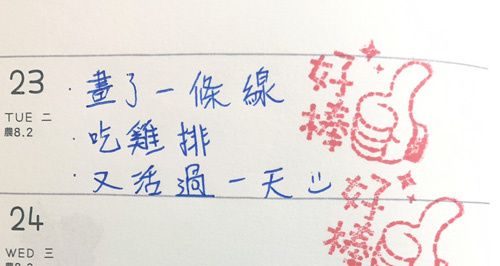 23
TUE 二
農8.2
·畫了一條線
·吃雞排
·又活過一天
好棒
24
WED 三
好棒